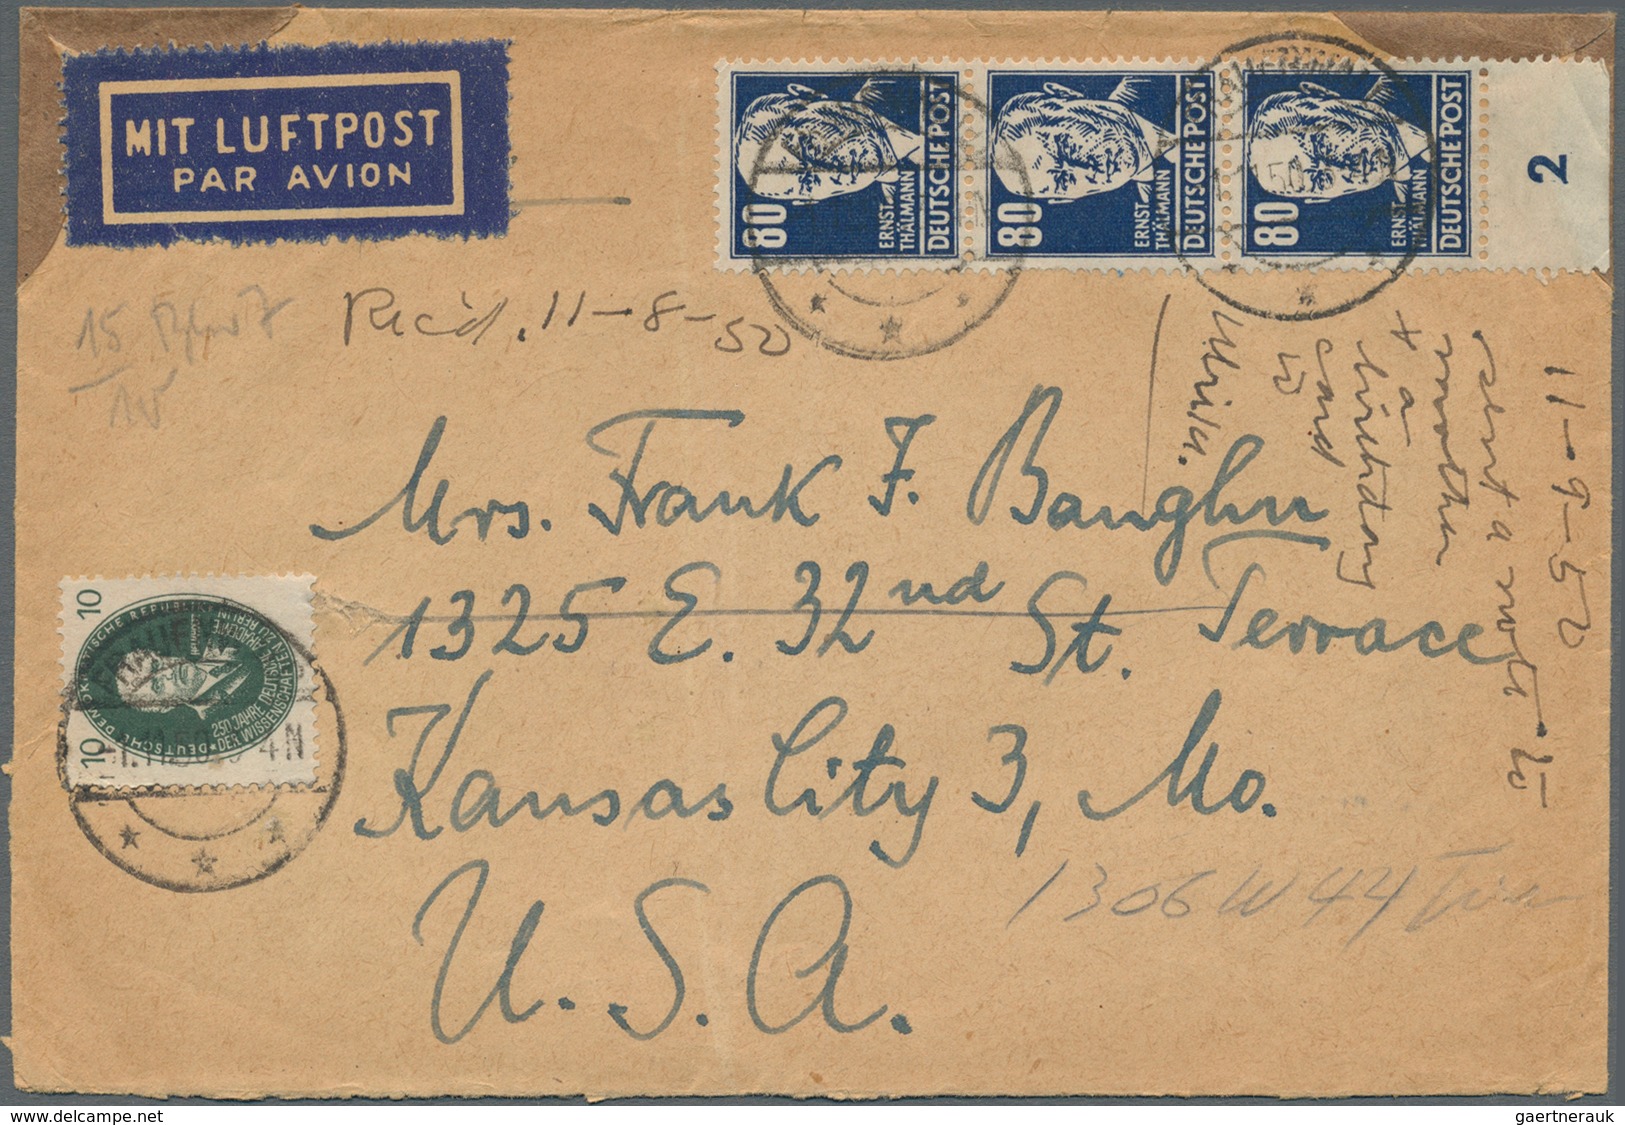 MIT LUFTPOST
PAR AVION
80
ERNST
THÄLMANN
DEUTSCHE POST
80
ERNST
THÄLMANN
DEUTSCHE POST
80
ERNST
THÄLMANN
DEUTSCHE POST
2
Rec'd. 11-8-50
11-9-50
sent a
+ a
birthday
card
to
Mrs. Frank F.
1325 E. 32nd St. Terrace
Kansas City 3, Mo.
U.S.A.
1306 W 44
10
10
DEUTSCHE DEMOKRATISCHE REPUBLIK
250 JAHRE DEUTSCHE AKADEMIE
DER WISSENSCHAFTEN ZU BERLIN
4N
delcampe.net
gaertnerauk